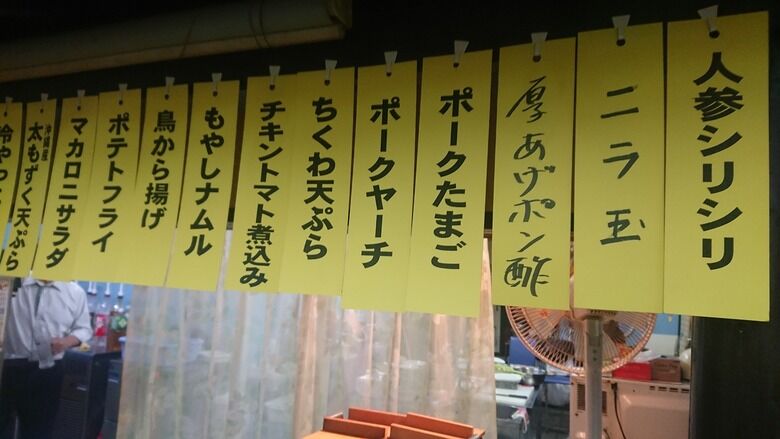 人参シリシリ
ニラ玉
厚あげポン酢
ポークたまご
ポークヤーチ
ちくわ天ぷら
チキントマト煮込み
もやしナムル
鳥から揚げ
ポテトフライ
マカロニサラダ
沖縄産
太もずく天ぷら
冷やっ